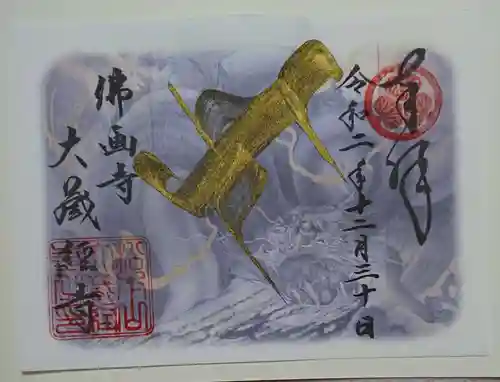 奉拝
令和二年十二月三十日
佛画寺
大蔵経寺